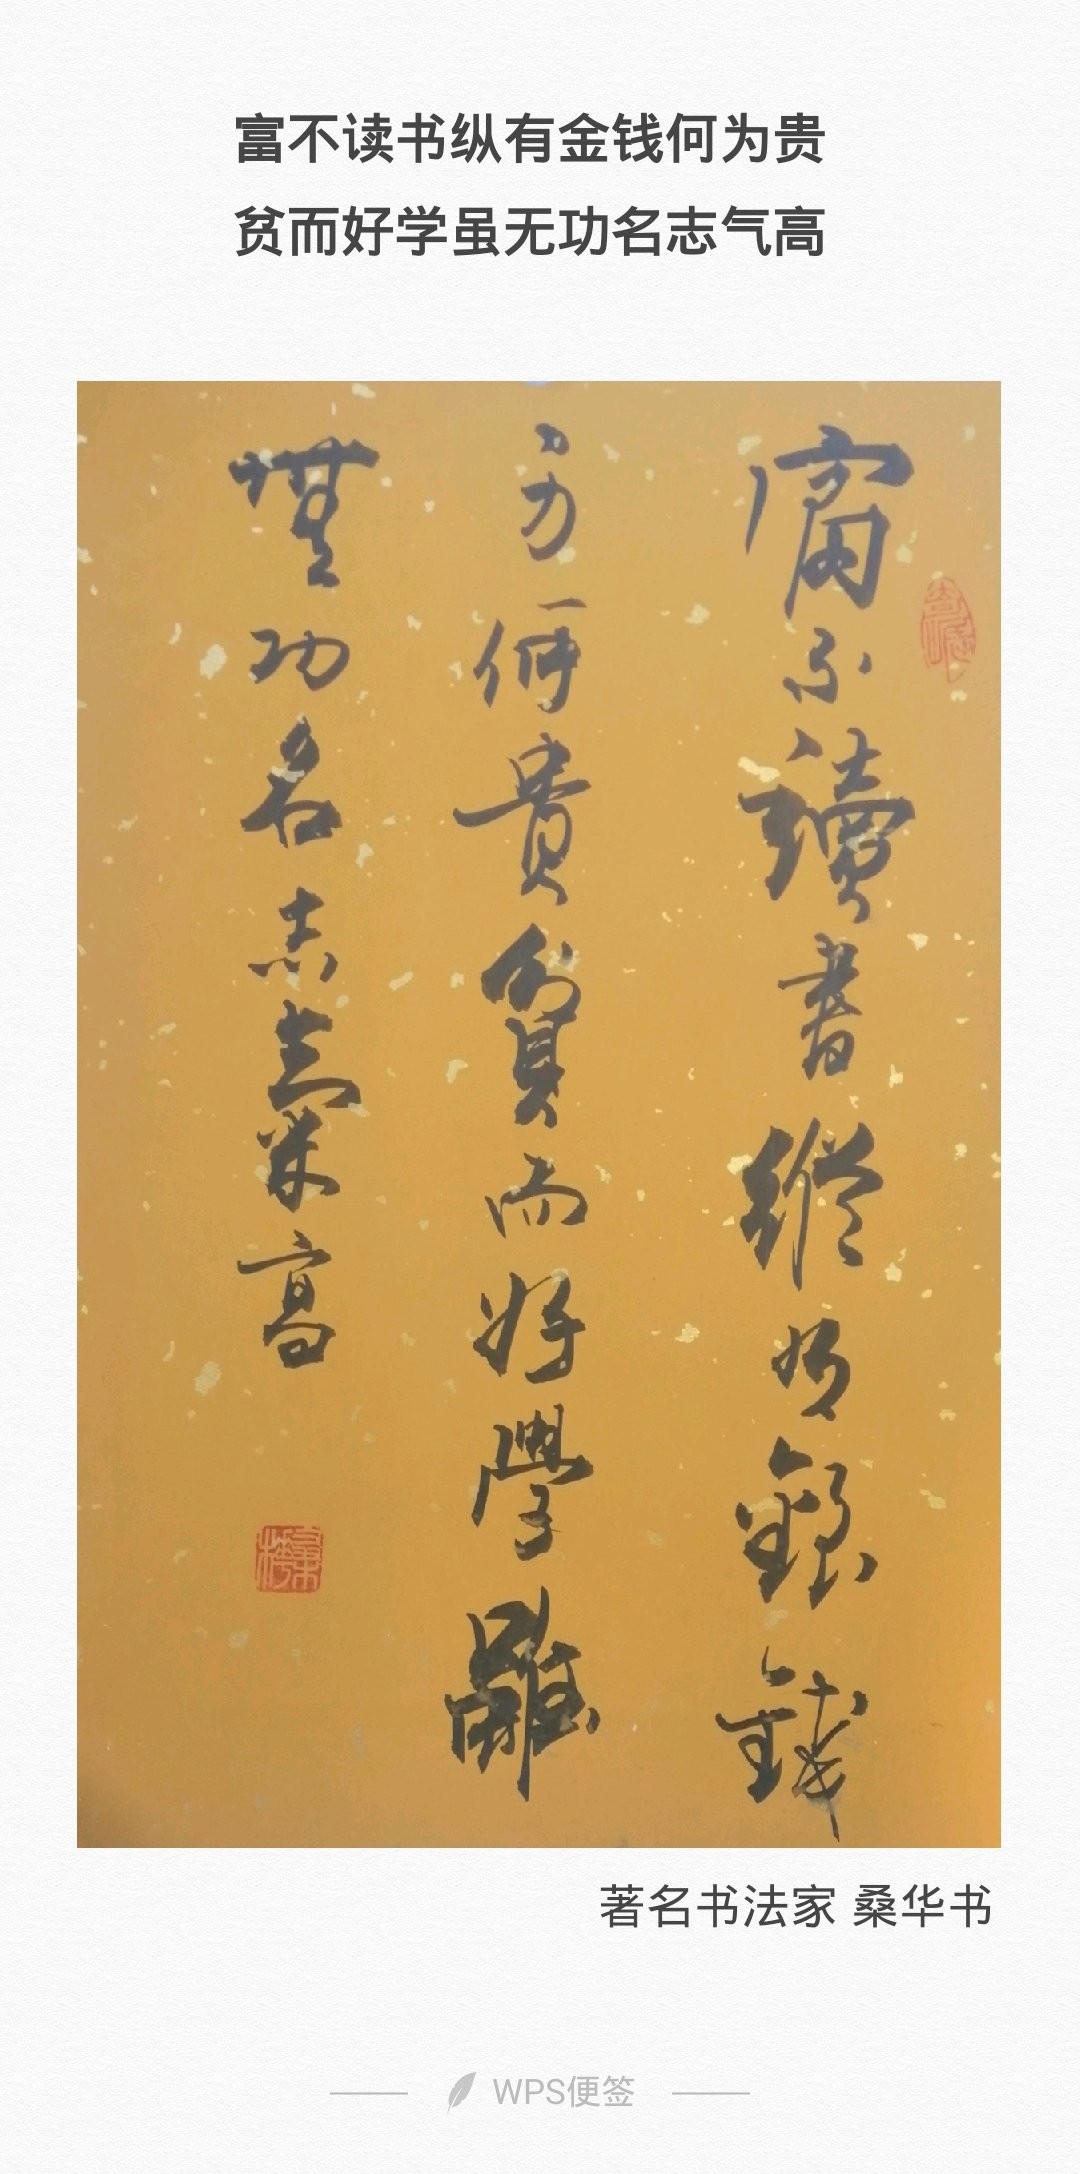 富不读书纵有金钱何为贵
贫而好学虽无功名志气高
富不讀書縱有銀錢
为何貴貧而好學雖
無功名志氣高
著名书法家 桑华书
WPS便签